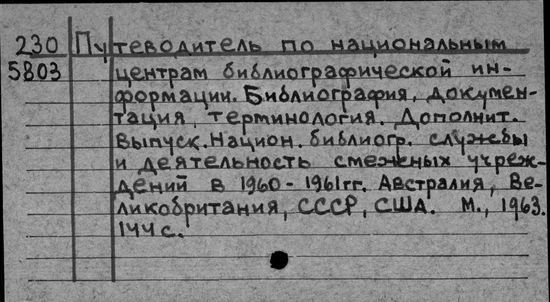 230 Путеводитель по национальным
5803 центрам библиографической ин-
формации. Библиография, докумен-
тация, терминология. Дополнит.
выпуск. Национ. библиогр. службы
и деятельность смежных учреж-
дений в 1960-1961 гг. Австралия, Ве-
ликобритания, СССР, США. М., 1963.
144 с.